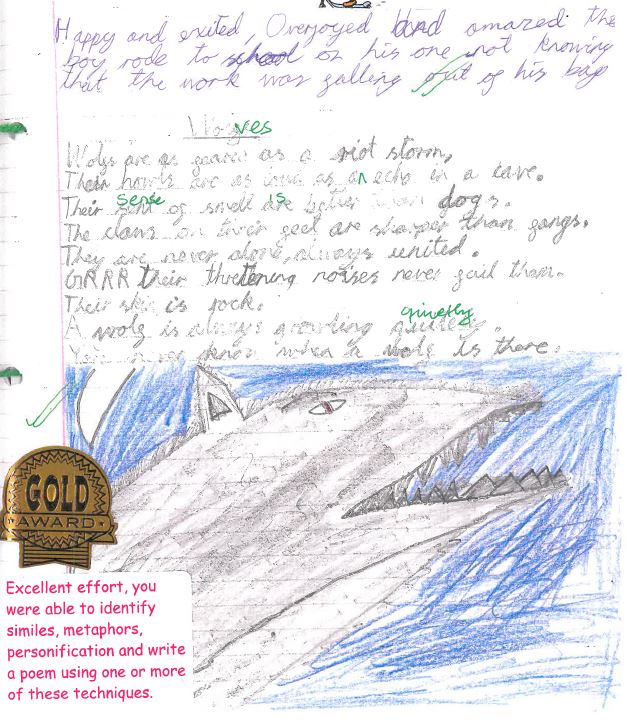 Happy and exited, Overjoyed and amazed the
boy rode to school on his one not knowing
that the work was falling out of his bag
Wolves
Wolfs are as feared as a riot storm,
Their howls are as loud as an echo in a cave.
Their sense of smell is better than dogs.
The claws on their feet are sharper than fangs.
They are never alone, always united.
GRRR their thretening noises never fail them.
Their skin is rock.
A wolf is always growling quietly.
You never know when a wolf is there.
GOLD
AWARD
Excellent effort, you
were able to identify
similes, metaphors,
personification and write
a poem using one or more
of these techniques.